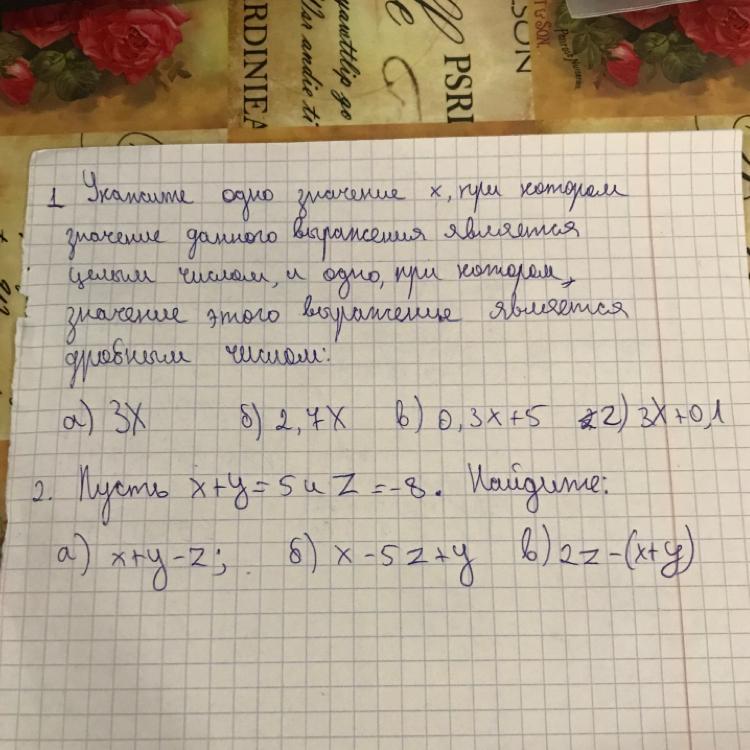 RDINIEA
llor andie ti
yawttlip go
e
PSRI
SON
T & SON.
1 Укажите одно значение x, при котором
значение данного выражения является
целым числом, и одно, при котором,
значение этого выражение является
дробным числом:
а) 3x б) 2,7x в) 0,3x+5 г) 3x+0,1
2. Пусть x+y=5 и z=-8. Найдите:
а) x+y-z; б) x-5z+y в) 2z-(x+y)